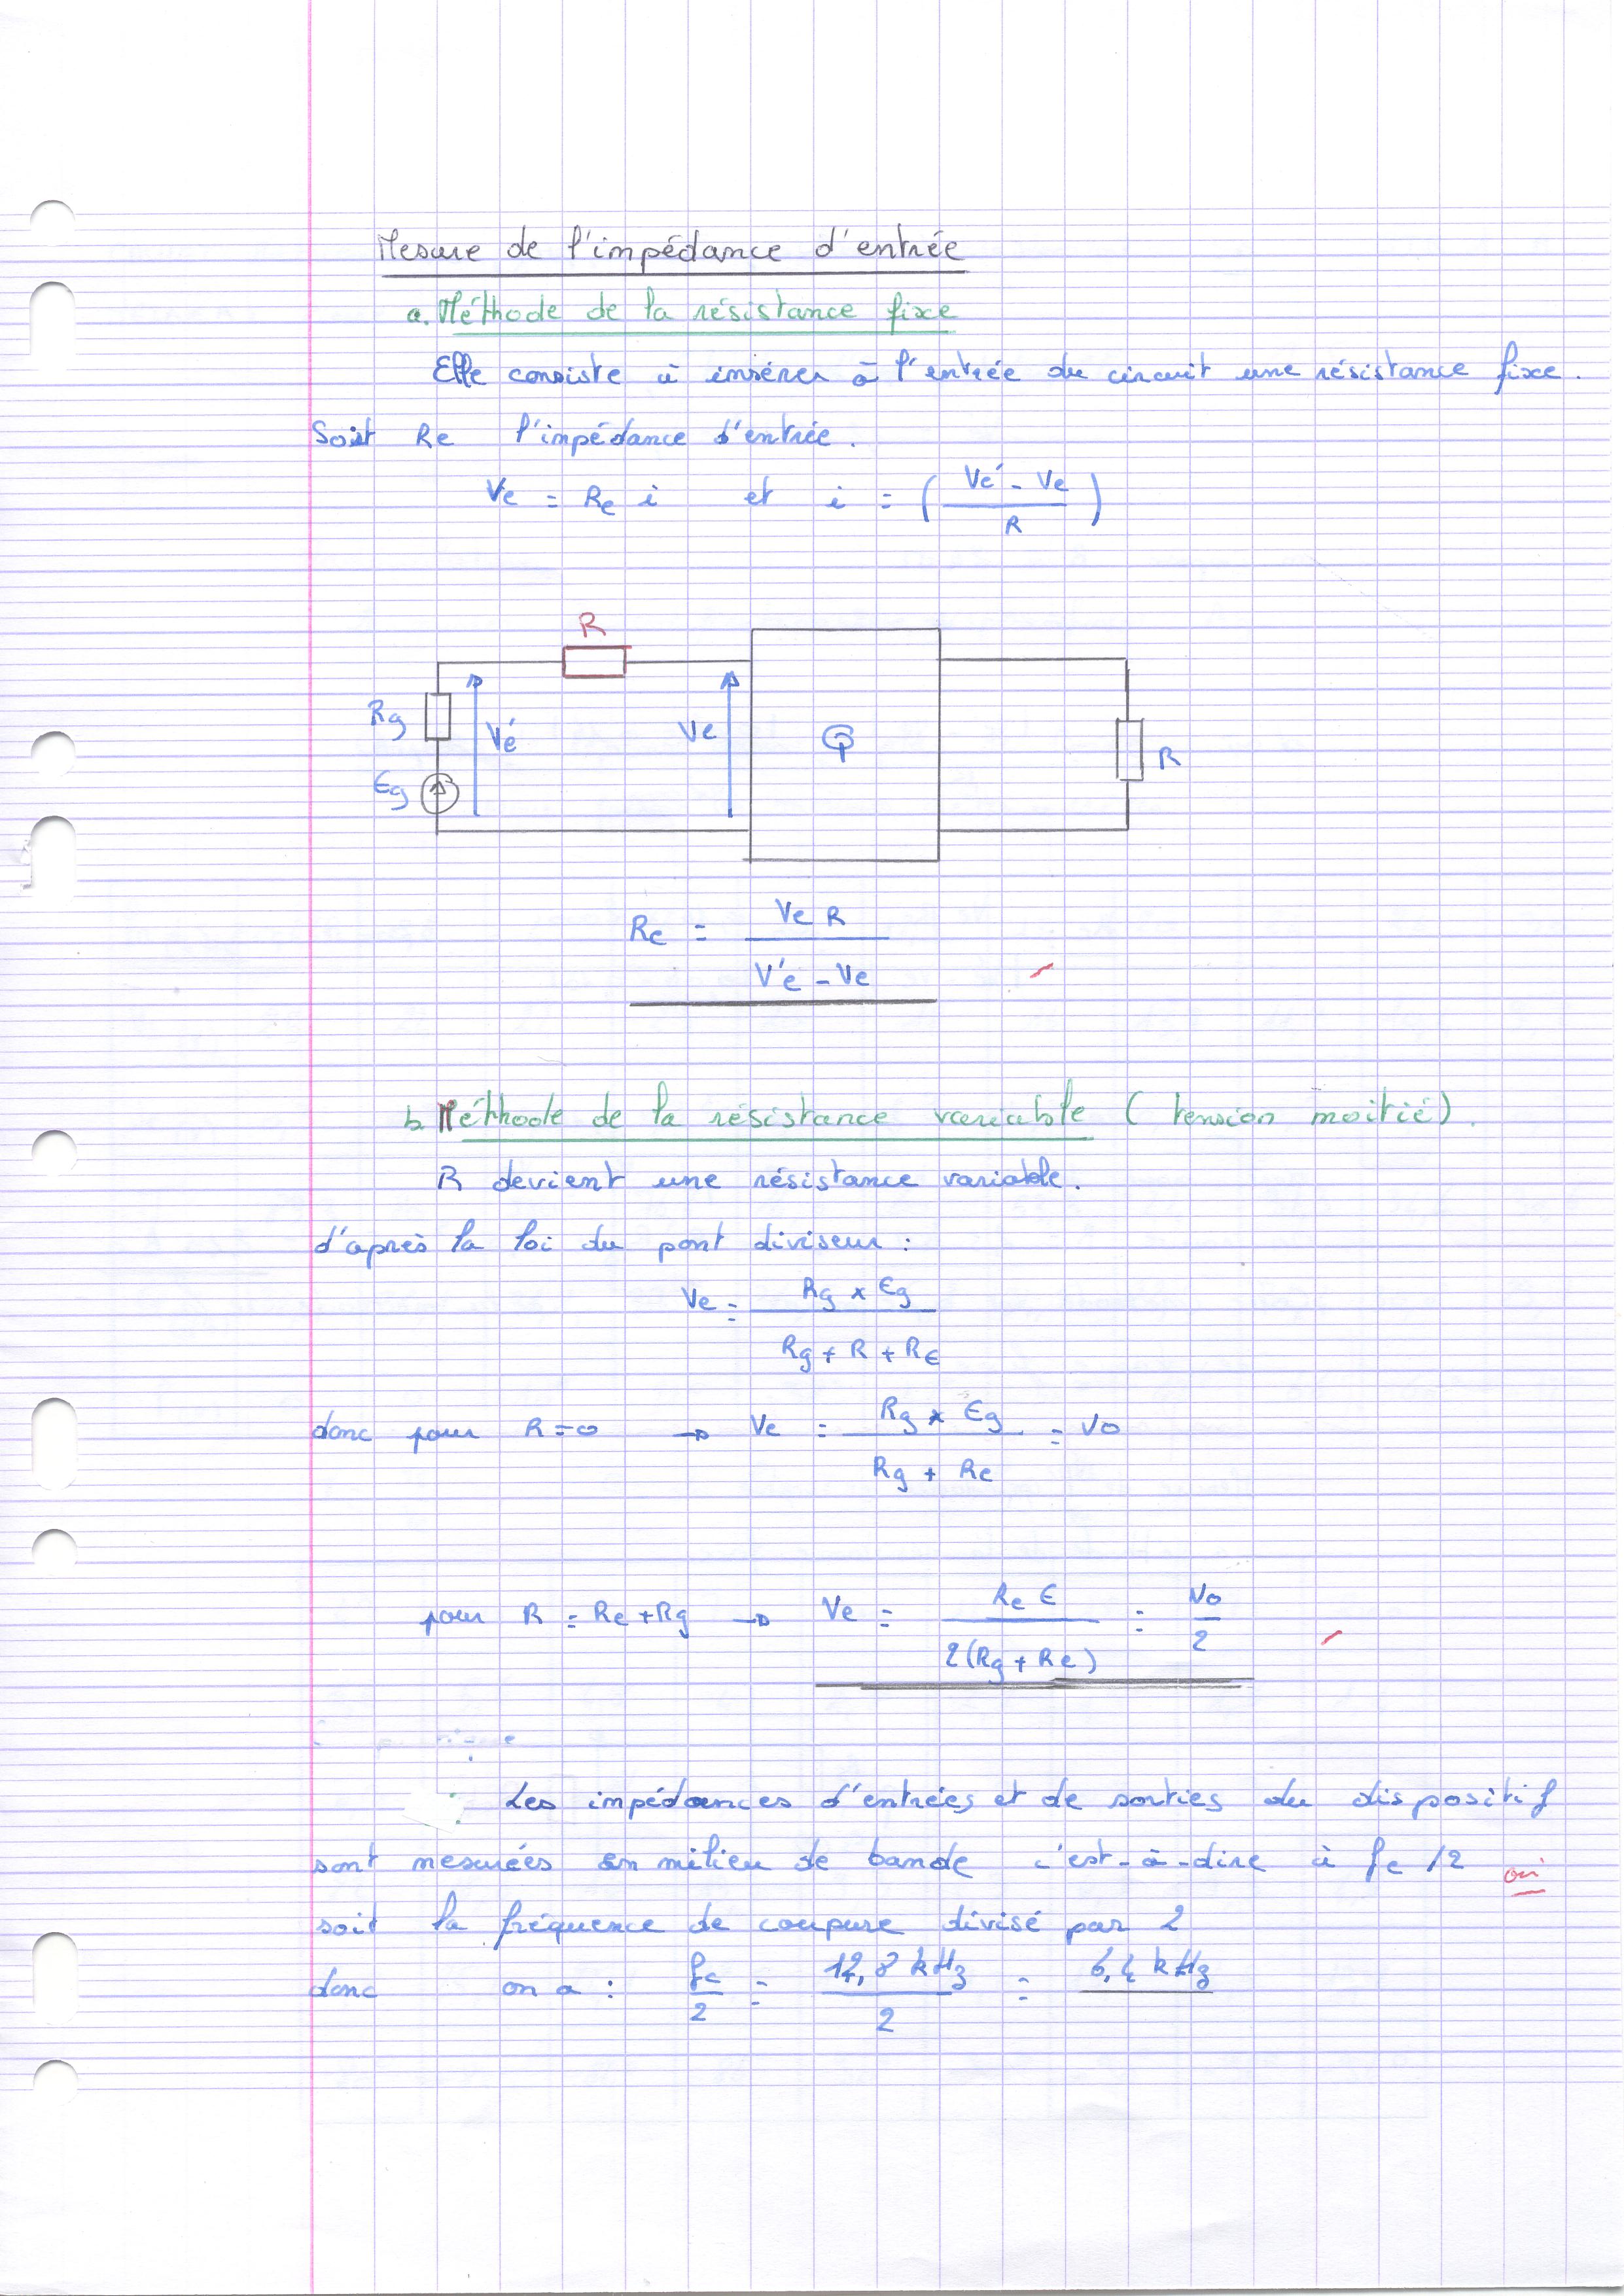 Mesure de l'impédance d'entrée
a. Méthode de la résistance fixe
Elle consiste à insérer à l'entrée du circuit une résistance fixe.
Soit Re l'impédance d'entrée.
Ve = Re i et i = ( Ve' - Ve / R )
R
Rg
V'e
Ve
Q
R
Eg
Re = Ve R / V'e - Ve
b. Méthode de la résistance variable ( tension moitié ).
R devient une résistance variable.
d'après la loi du pont diviseur :
Ve = Rg x Eg / Rg + R + Re
donc pour R = 0 → Ve = Rg x Eg / Rg + Re = V0
pour R = Re + Rg → Ve = Re E / 2(Rg + Re) = V0 / 2
Les impédances d'entrées et de sorties du dispositif
sont mesurées en milieu de bande c'est-à-dire à fc /2 oui
soit la fréquence de coupure divisé par 2
donc on a : fc / 2 = 12,8 kHz / 2 = 6,4 kHz